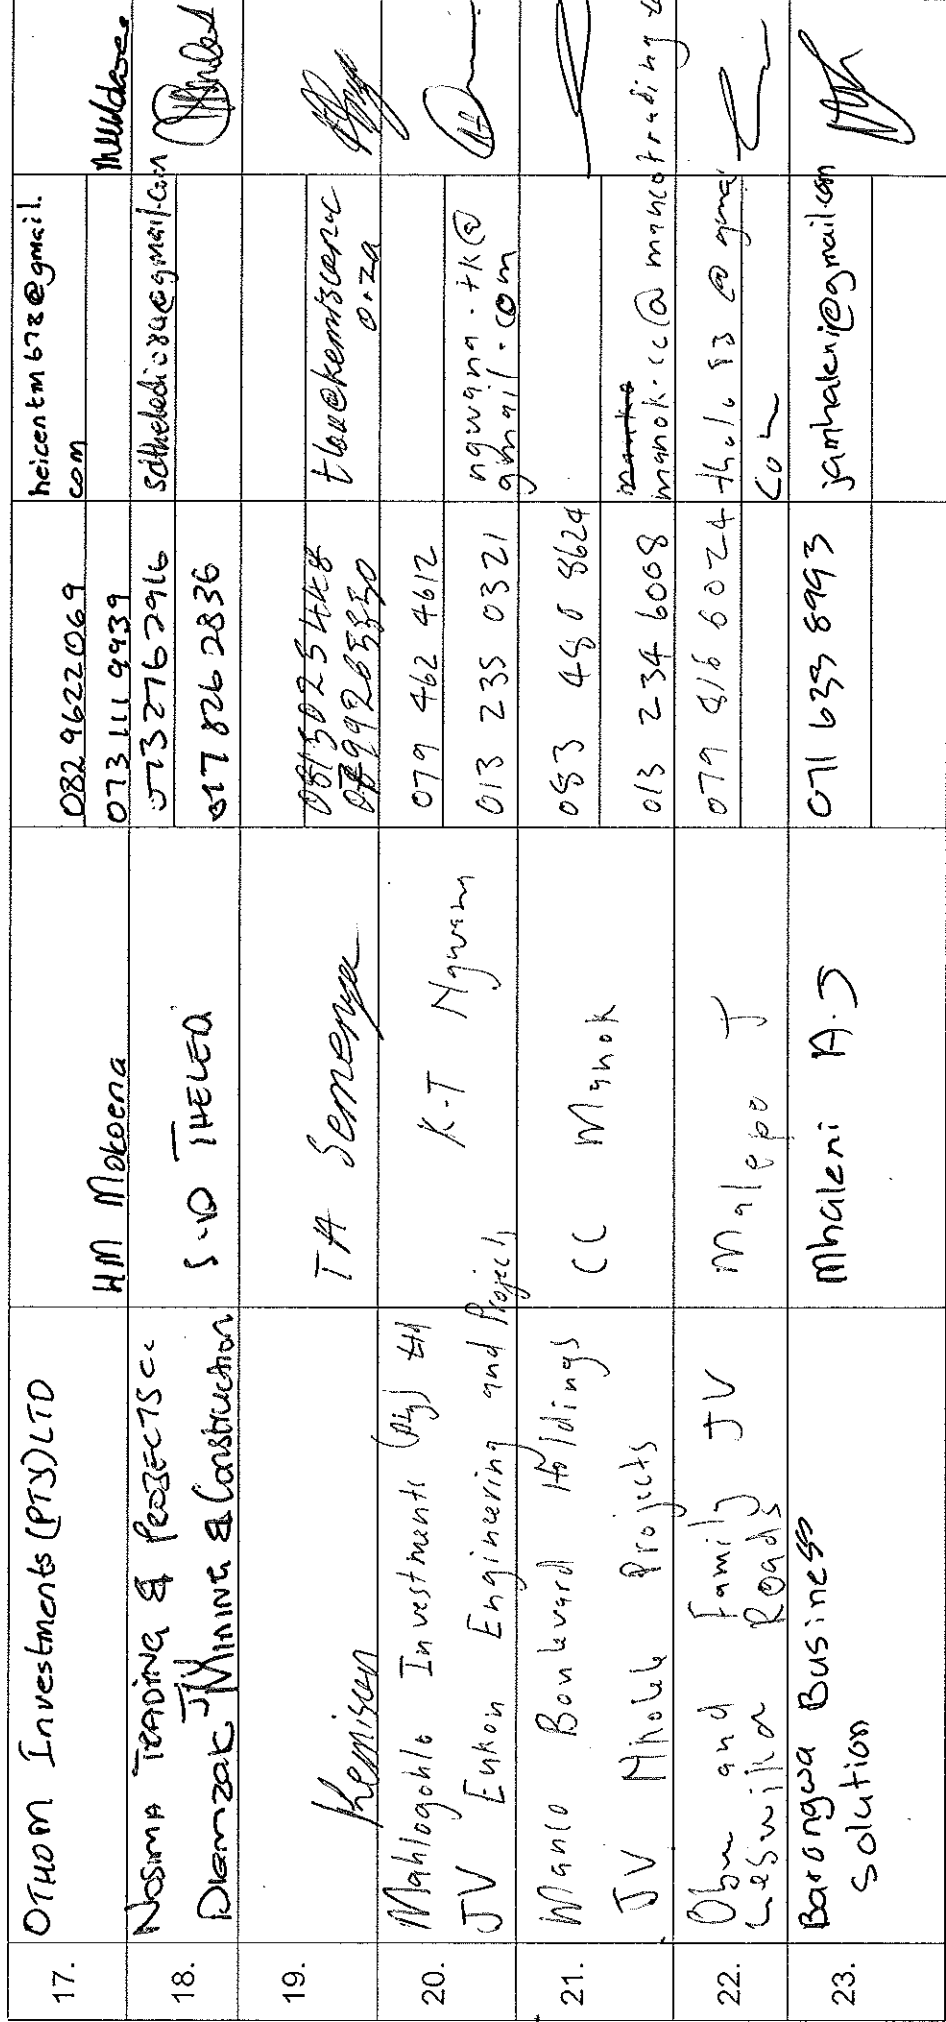 17.
OTHOM Investments (PTY) LTD
HM Mokoena
082 9622069
073 111 9939
heicentm678@gmail.
com
18.
NOSIMA TRADING & PROJECTS CC
JV
Diamzak Mining & Construction
S.D THELEDI
073 276 2916
017 826 2836
19.
Kemison
TA Semenya
20.
Mahlogohlo Investments (Pty) Ltd
JV Enkon Engineering and Projects
K.T Ngwana
079 462 4612
013 235 0321
ngwana.tk@
gmail.com
21.
Manco Boulevard Holdings
JV Projects
CC Manok
083 480 8624
013 234 6008
manok.cc@mancotrading
22.
and Family JV
Roads
Malepe J
079 816 6024
thalo83@gmai
com
23.
Barongwa Business
Solution
Mhaleni A.J
071 639 8993
jamhaleni@gmail.com